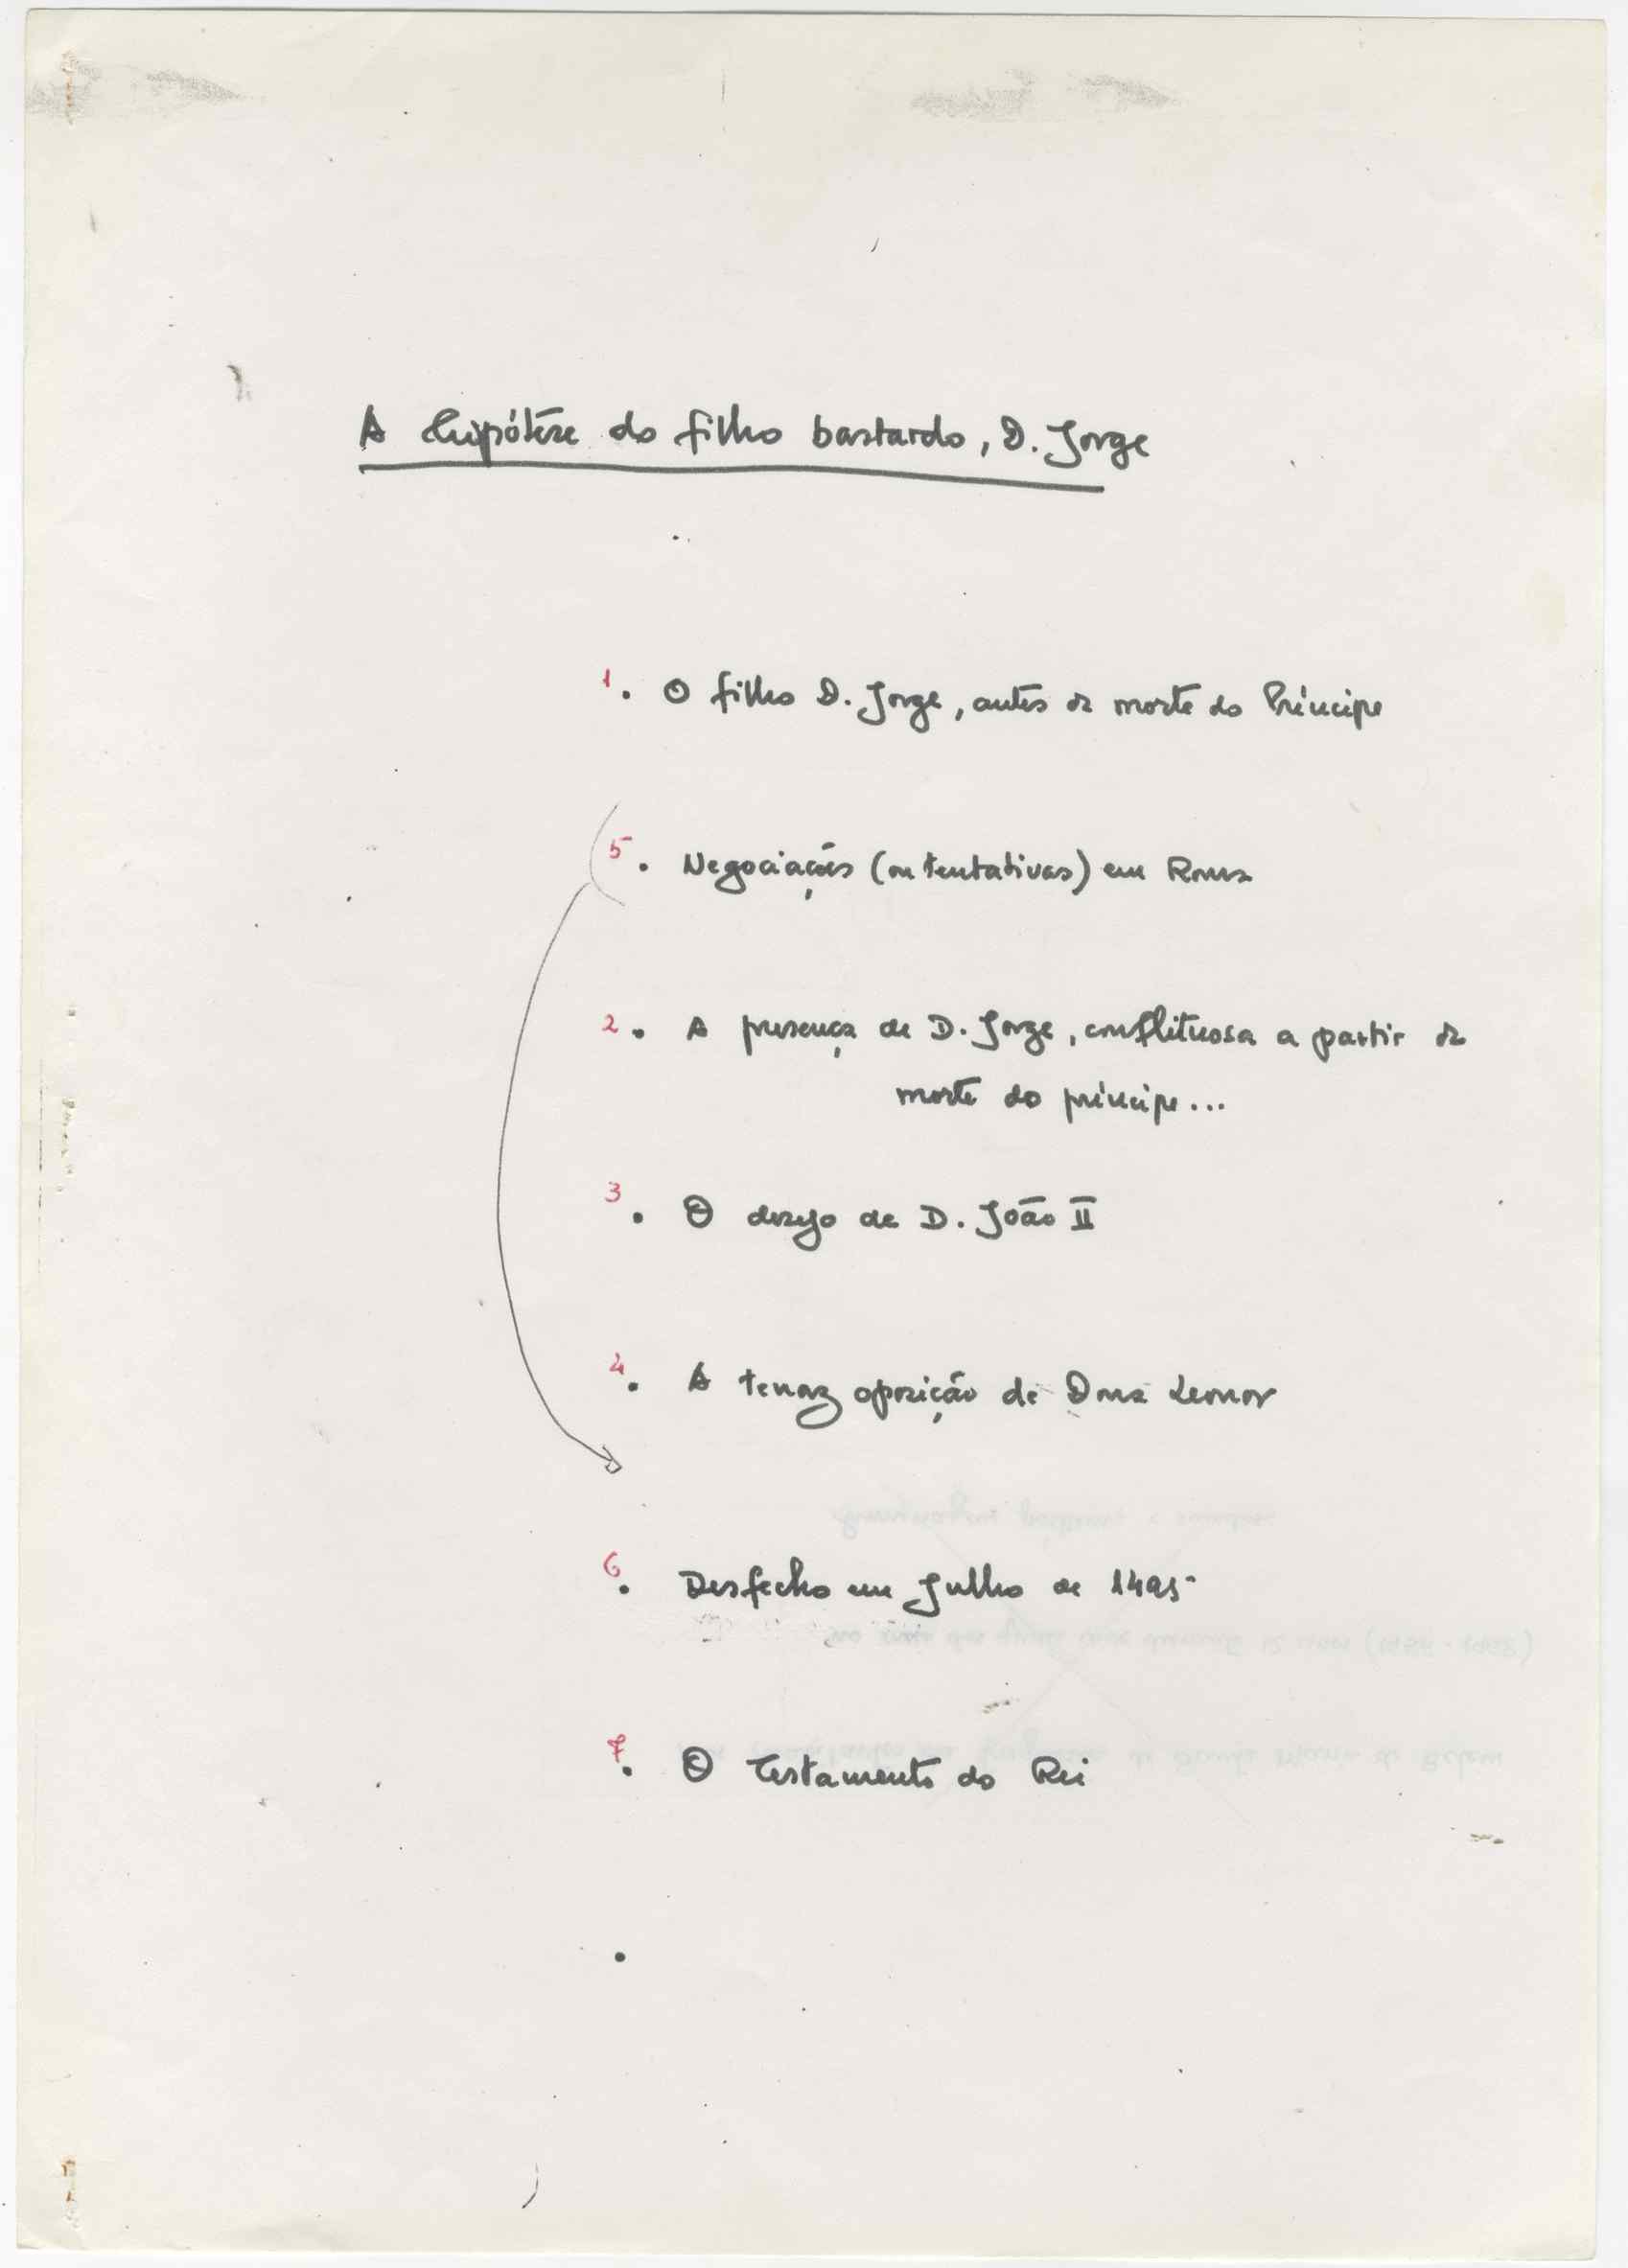 A hipótese do filho bastardo, D. Jorge
1. O filho D. Jorge, antes da morte do Príncipe
5. Negociações (ou tentativas) em Roma
2. A presença de D. Jorge, conflituosa a partir da
morte do príncipe...
3. O desejo de D. João II
4. A tenaz oposição de Dona Leonor
6. Desfecho em Julho de 1495
7. O Testamento do Rei